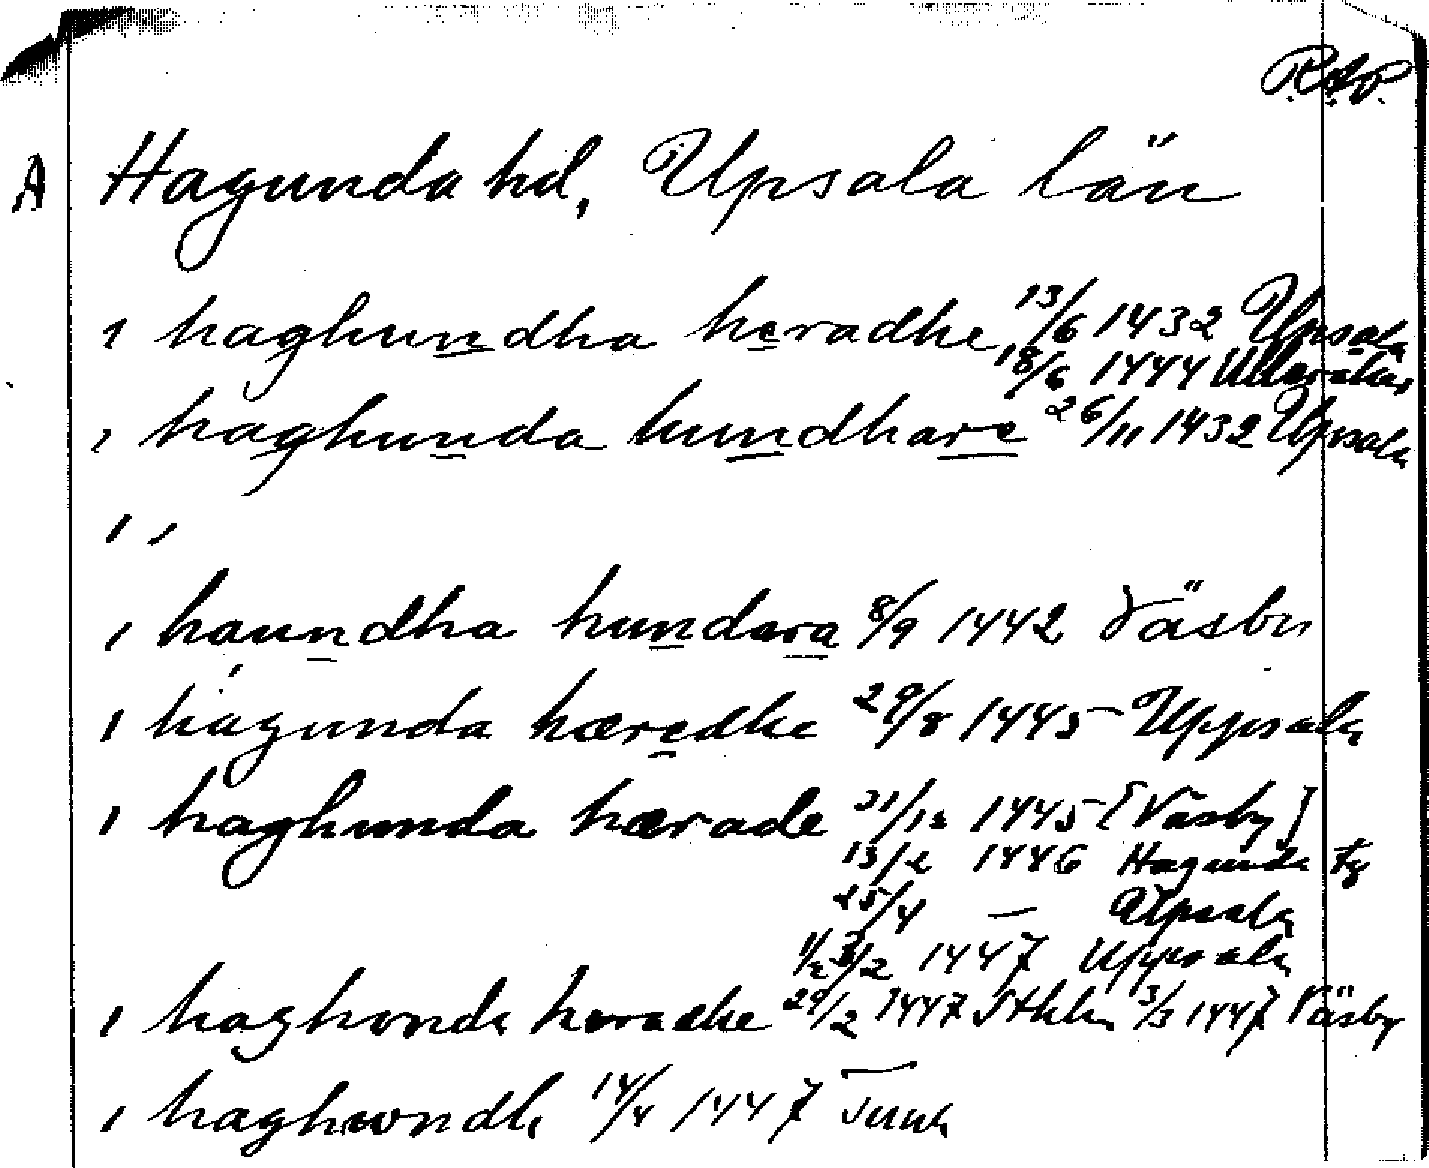 R.A.P.
A Hagunda hd, Upsala län
i haghundha heradhe 13/6 1432 Upsala
18/6 1444 Ulleråker
i haghunda hundhare 26/11 1432 Upsala
i i
i haundha hundara 8/9 1442 Väsby
i hagunda hæredhe 29/8 1445 Uppsala
i haghunda hærade 21/12 1445 [Väsby]
13/2 1446 Hagunda tg
25/4 — Upsala
1/2 3/2 1447 Uppsala
i haghonda heradhe 29/2 1447 Sthlm 3/3 1447 Väsby
i haghwnda 14/4 1447 Tuna